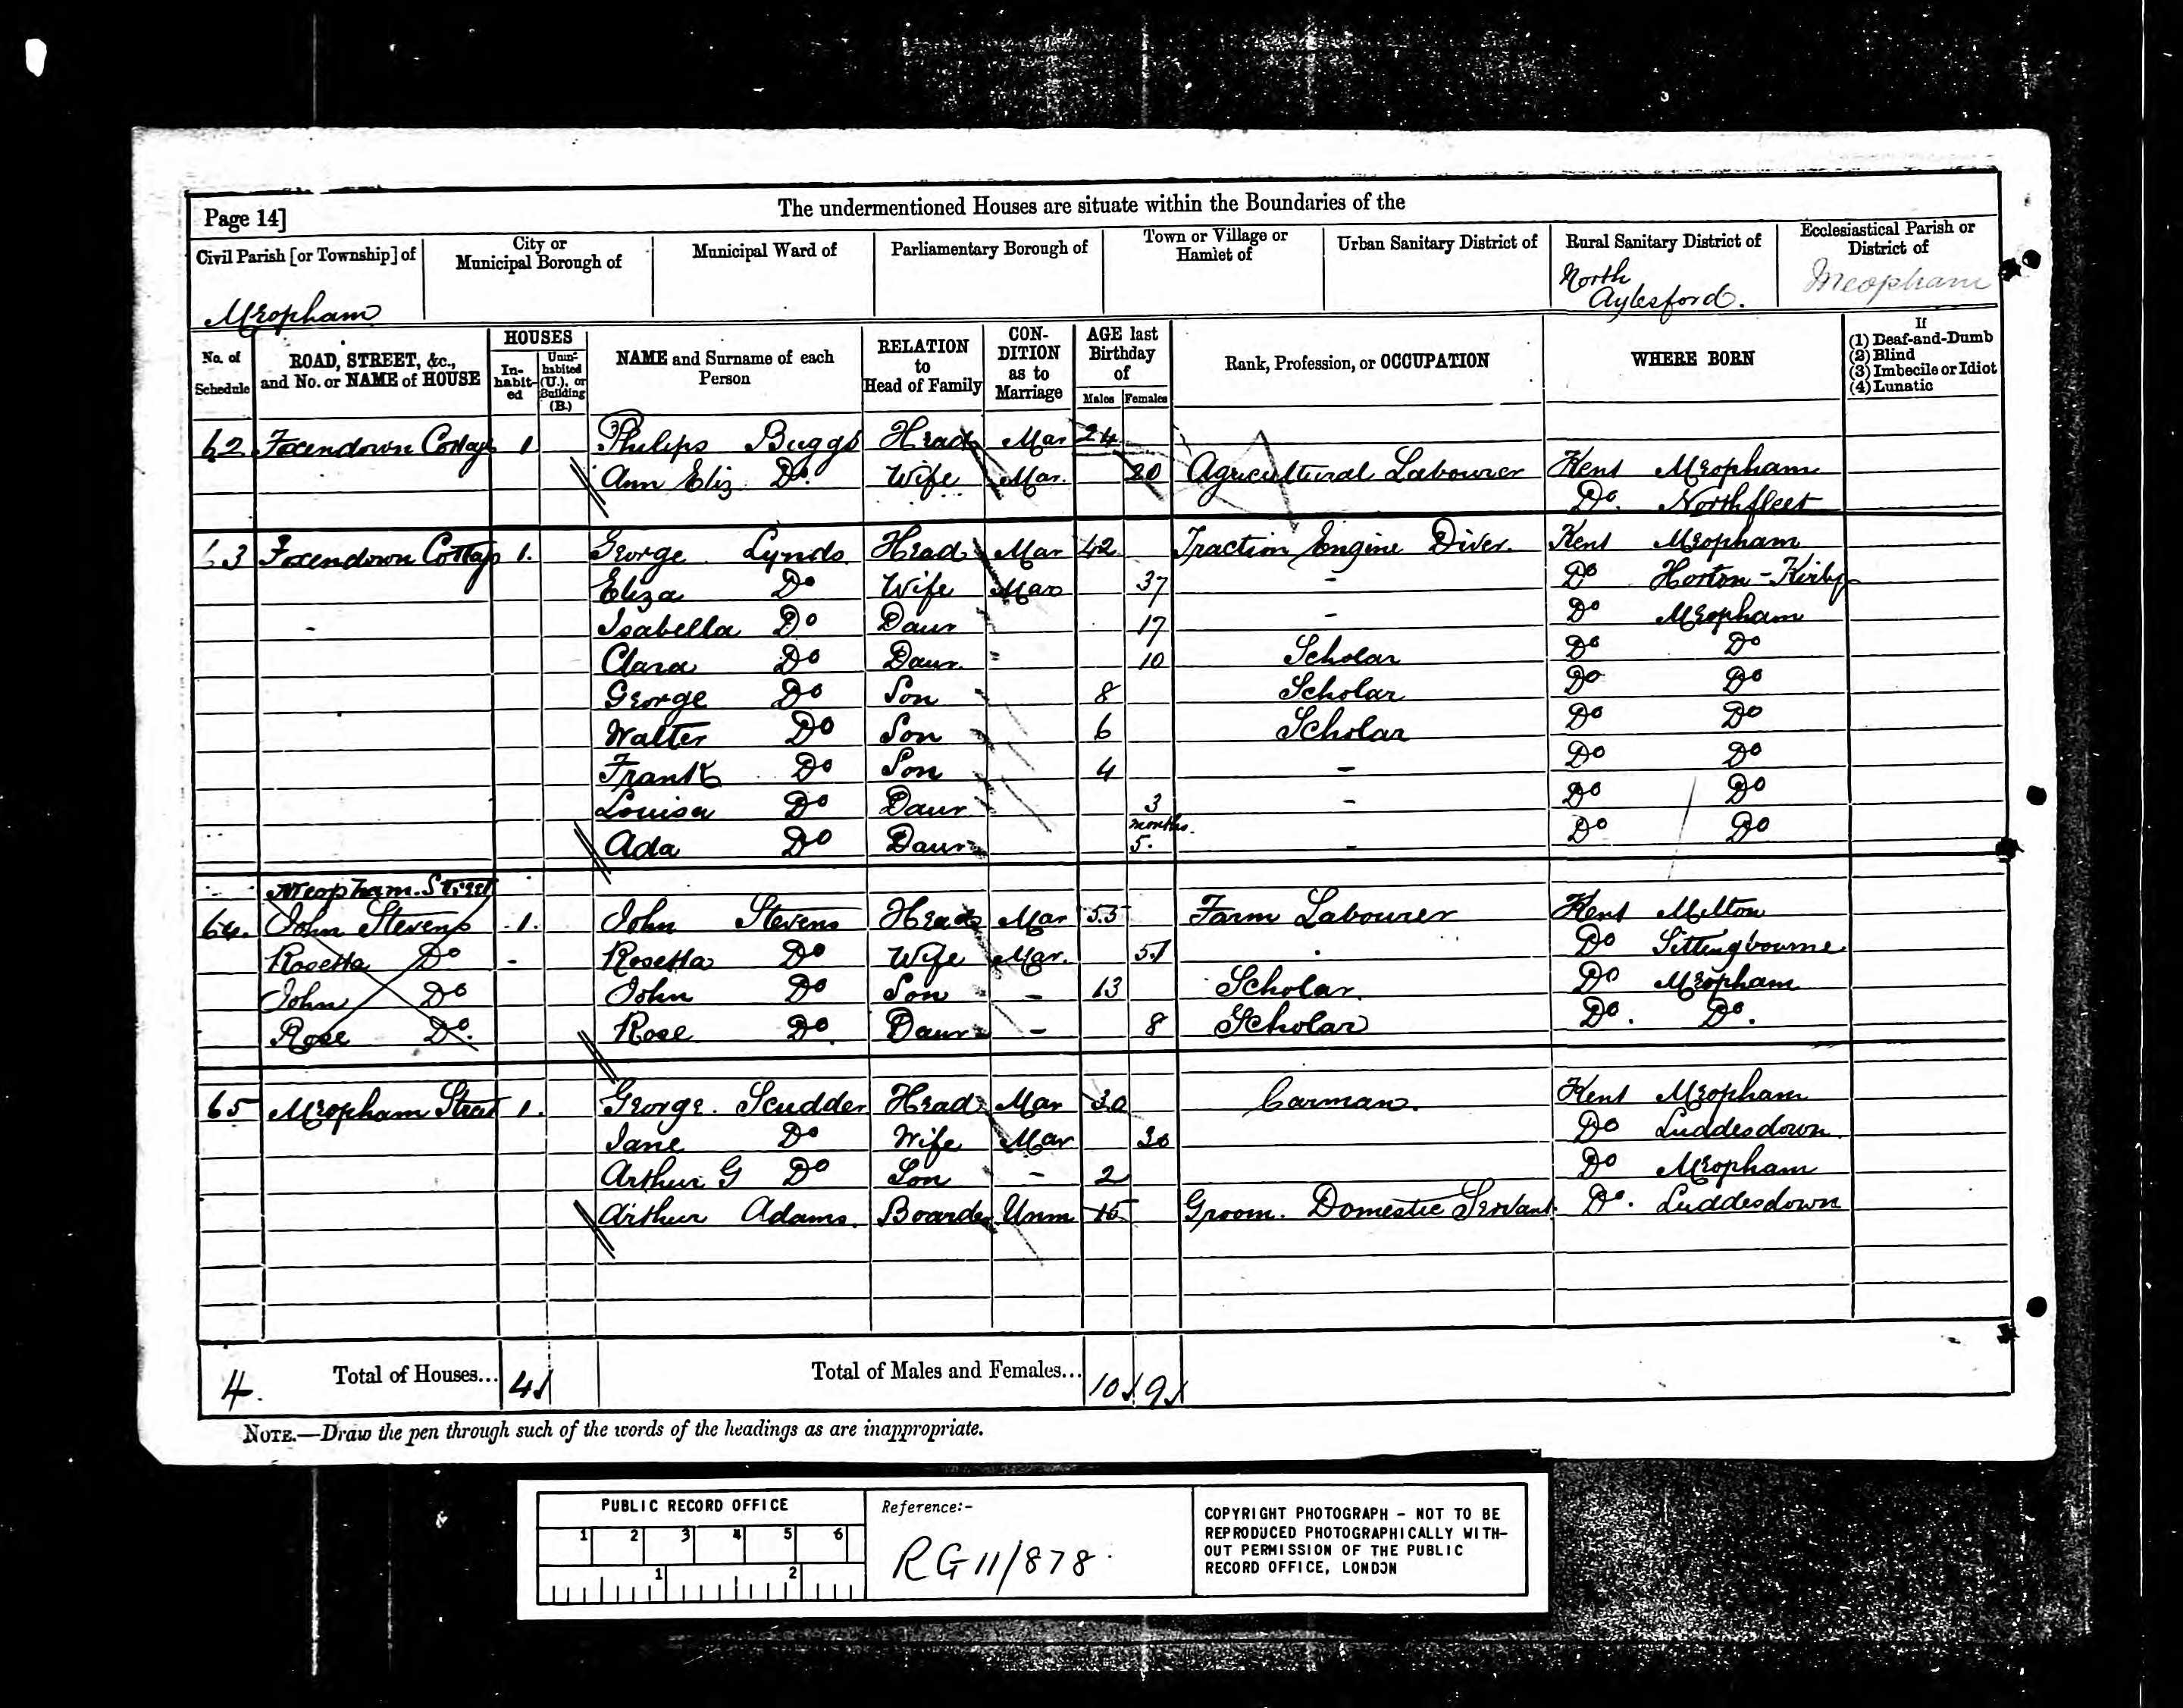 Page 14]
The undermentioned Houses are situate within the Boundaries of the
Civil Parish [or Township] of
City or Municipal Borough of
Municipal Ward of
Parliamentary Borough of
Town or Village or Hamlet of
Urban Sanitary District of
Rural Sanitary District of
Ecclesiastical Parish or District of
Meopham
North Aylesford.
Meopham
No. of Schedule
ROAD, STREET, &c., and No. or NAME of HOUSE
HOUSES
In-habit-ed
Unin-habited (U.), or Building (B.)
NAME and Surname of each Person
RELATION to Head of Family
CON-DITION as to Marriage
AGE last Birthday of
Males Females
Rank, Profession, or OCCUPATION
WHERE BORN
If
(1) Deaf-and-Dumb
(2) Blind
(3) Imbecile or Idiot
(4) Lunatic
62 Foxendown Cottage 1 Philips Buggs Head Mar 24
Ann Eliz Do. Wife Mar. 20 Agricultural Labourer Kent Meopham
Do. Northfleet
63 Foxendown Cottage 1. George Lynds Head Mar 42 Traction Engine Diver. Kent Meopham
Eliza Do Wife Mar 37 - Do Horton-Kirby
Isabella Do Daur 17 - Do Meopham
Clara Do Daur 10 Scholar Do Do
George Do Son 8 Scholar Do Do
Walter Do Son 6 Scholar Do Do
Frank Do Son 4 - Do Do
Louisa Do Daur 3 - Do Do
Ada Do Daur months 5. - Do Do
Meopham Street
64. John Stevens 1. John Stevens Head Mar 55 Farm Labourer Kent Melton
Rosetta Do - Rosetta Do Wife Mar. 51 Do Sittingbourne
John Do John Do Son - 13 Scholar. Do Meopham
Rose Do. Rose Do. Daur - 8 Scholar Do. Do.
65 Meopham Street 1. George Scudder Head Mar 30 Carman. Kent Meopham
Jane Do Wife Mar 30 Do Luddesdown
Arthur G Do Son - 2 Do Meopham
Arthur Adams. Boarder Unm 15 Groom. Domestic Servant Do. Luddesdown
4. Total of Houses... 4 Total of Males and Females... 10 9
NOTE.—Draw the pen through such of the words of the headings as are inappropriate.
PUBLIC RECORD OFFICE
1 2 3 4 5 6
1 2
Reference:-
RG 11/878
COPYRIGHT PHOTOGRAPH - NOT TO BE
REPRODUCED PHOTOGRAPHICALLY WITH-
OUT PERMISSION OF THE PUBLIC
RECORD OFFICE, LONDON